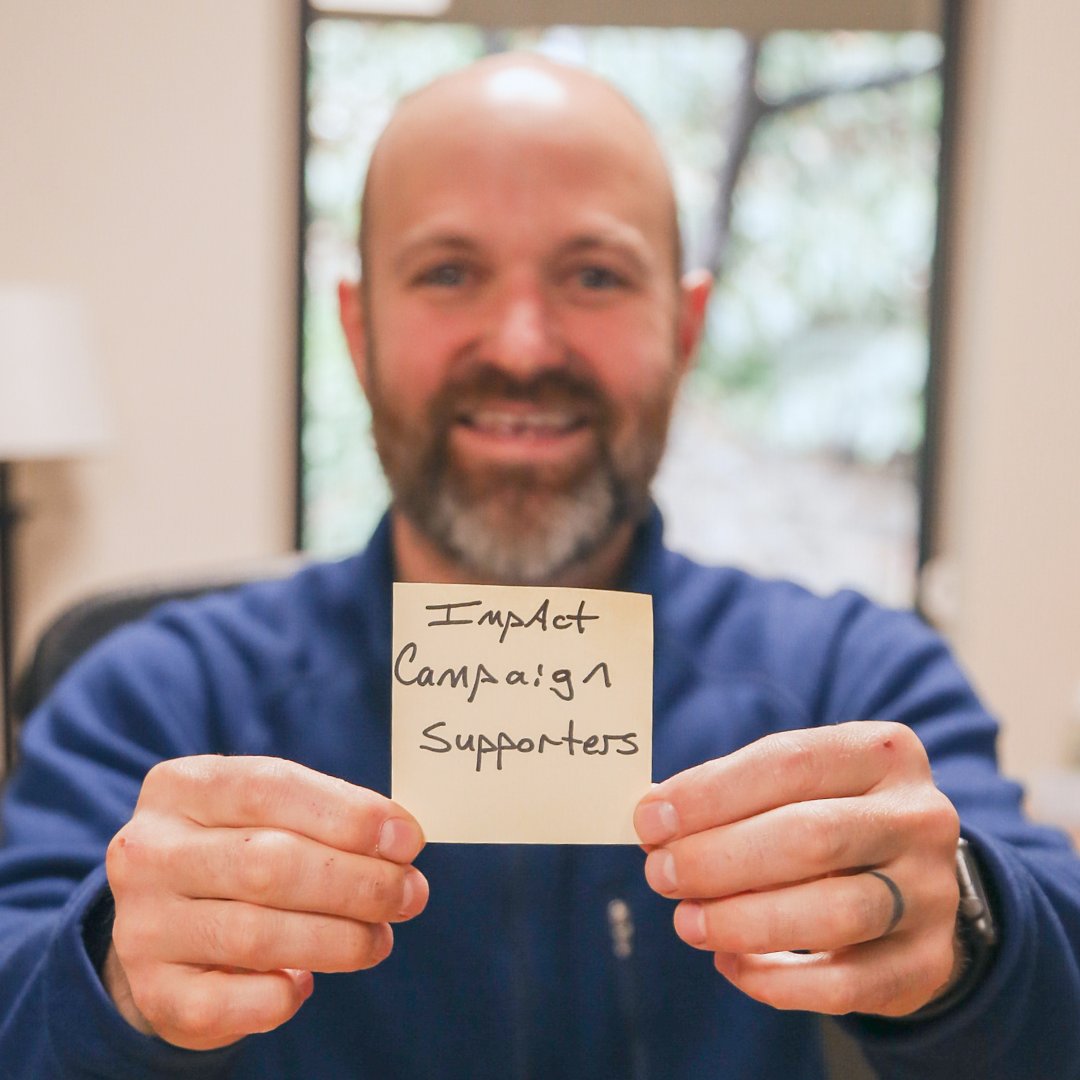 ImpAct
Campaign
Supporters